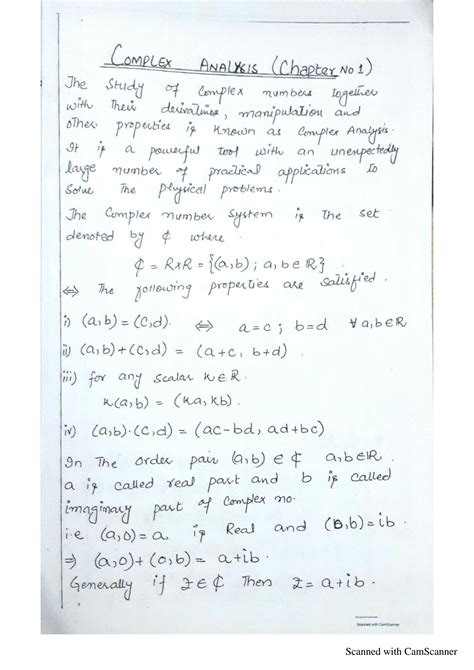 COMPLEX ANALYSIS (Chapter No 1)
The Study of Complex numbers together
with Their derivatives, manipulation and
other properties is known as Complex Analysis.
It is a powerful tool with an unexpectedly
large number of practical applications to
Solve The physical problems.
The Complex number System is The set
denoted by ₵ where
₵ = RxR = {(a,b) ; a,b ∈ R}
⇔ The following properties are satisfied.
i) (a,b) = (c,d). ⇔ a=c ; b=d ∀ a,b∈R
ii) (a,b)+(c,d) = (a+c, b+d).
iii) for any scalar k∈R.
k(a,b) = (ka, kb).
iv). (a,b).(c,d) = (ac-bd, ad+bc)
In The Order pair (a,b) ∈ ₵ a,b∈R.
a is called real part and b is called
imaginary part of Complex no.
i.e (a,0)=a is Real and (0,b)=ib
⇒ (a,0)+(0,b) = a+ib.
Generally if Z∈₵ Then Z = a+ib.
Scanned with CamScanner
Scanned with CamScanner